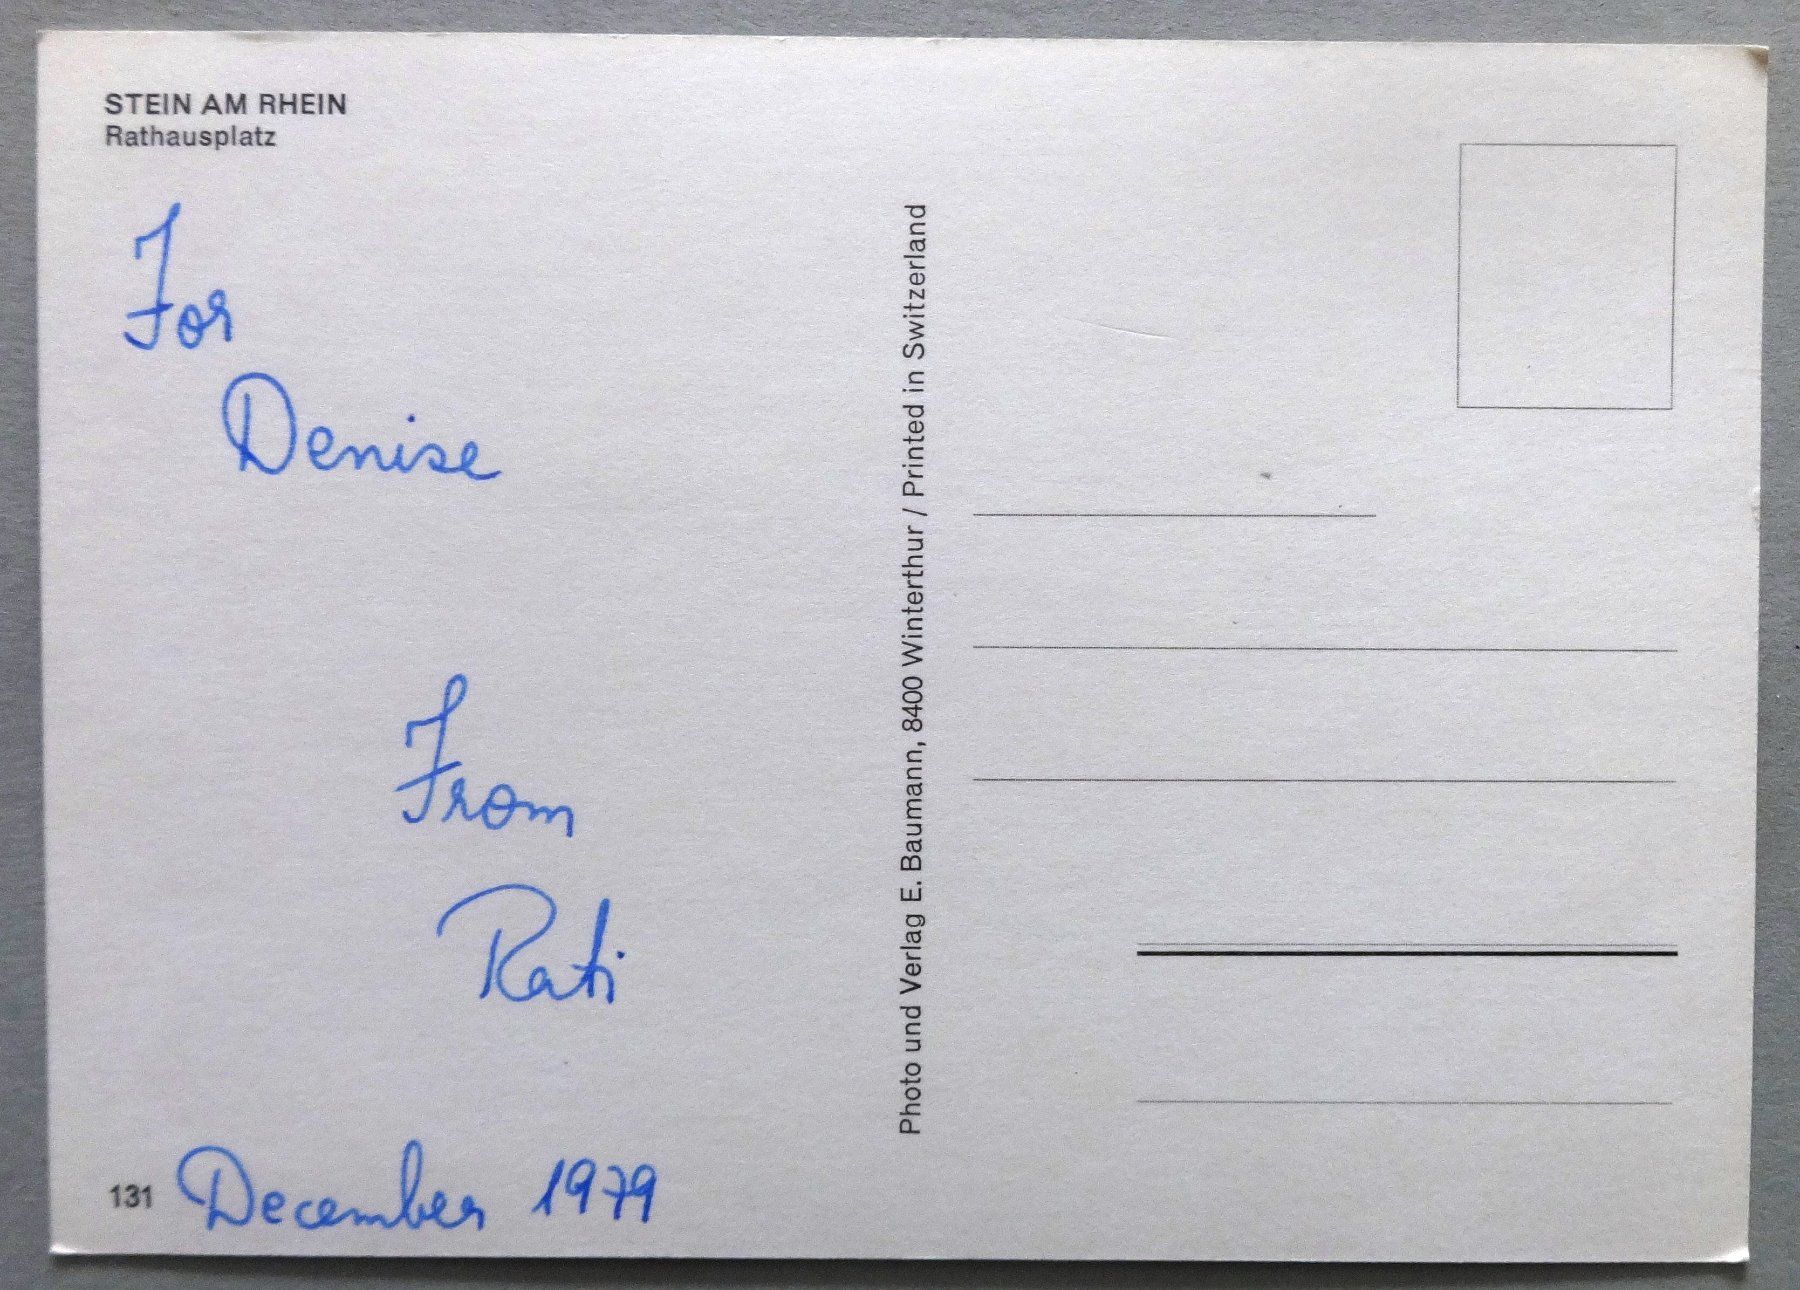 STEIN AM RHEIN
Rathausplatz
For
Denise
From
Rati
131
December 1979
Photo und Verlag E. Baumann, 8400 Winterthur / Printed in Switzerland